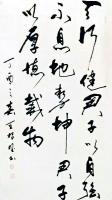 天行健君子以自强
不息地势坤君子
以厚德载物
丁酉之春